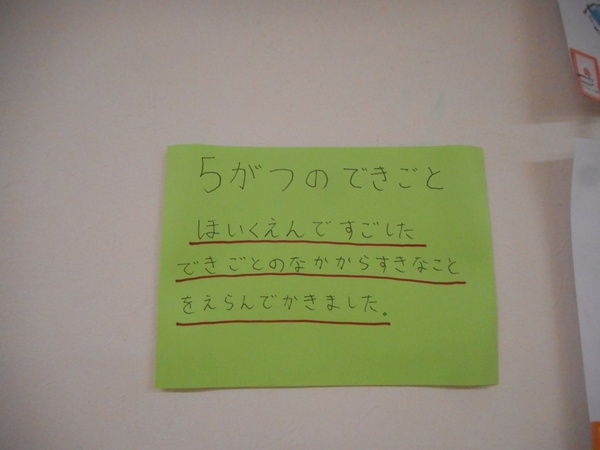 5がつのできごと
ほいくえんですごした
できごとのなかからすきなこと
をえらんでかきました。